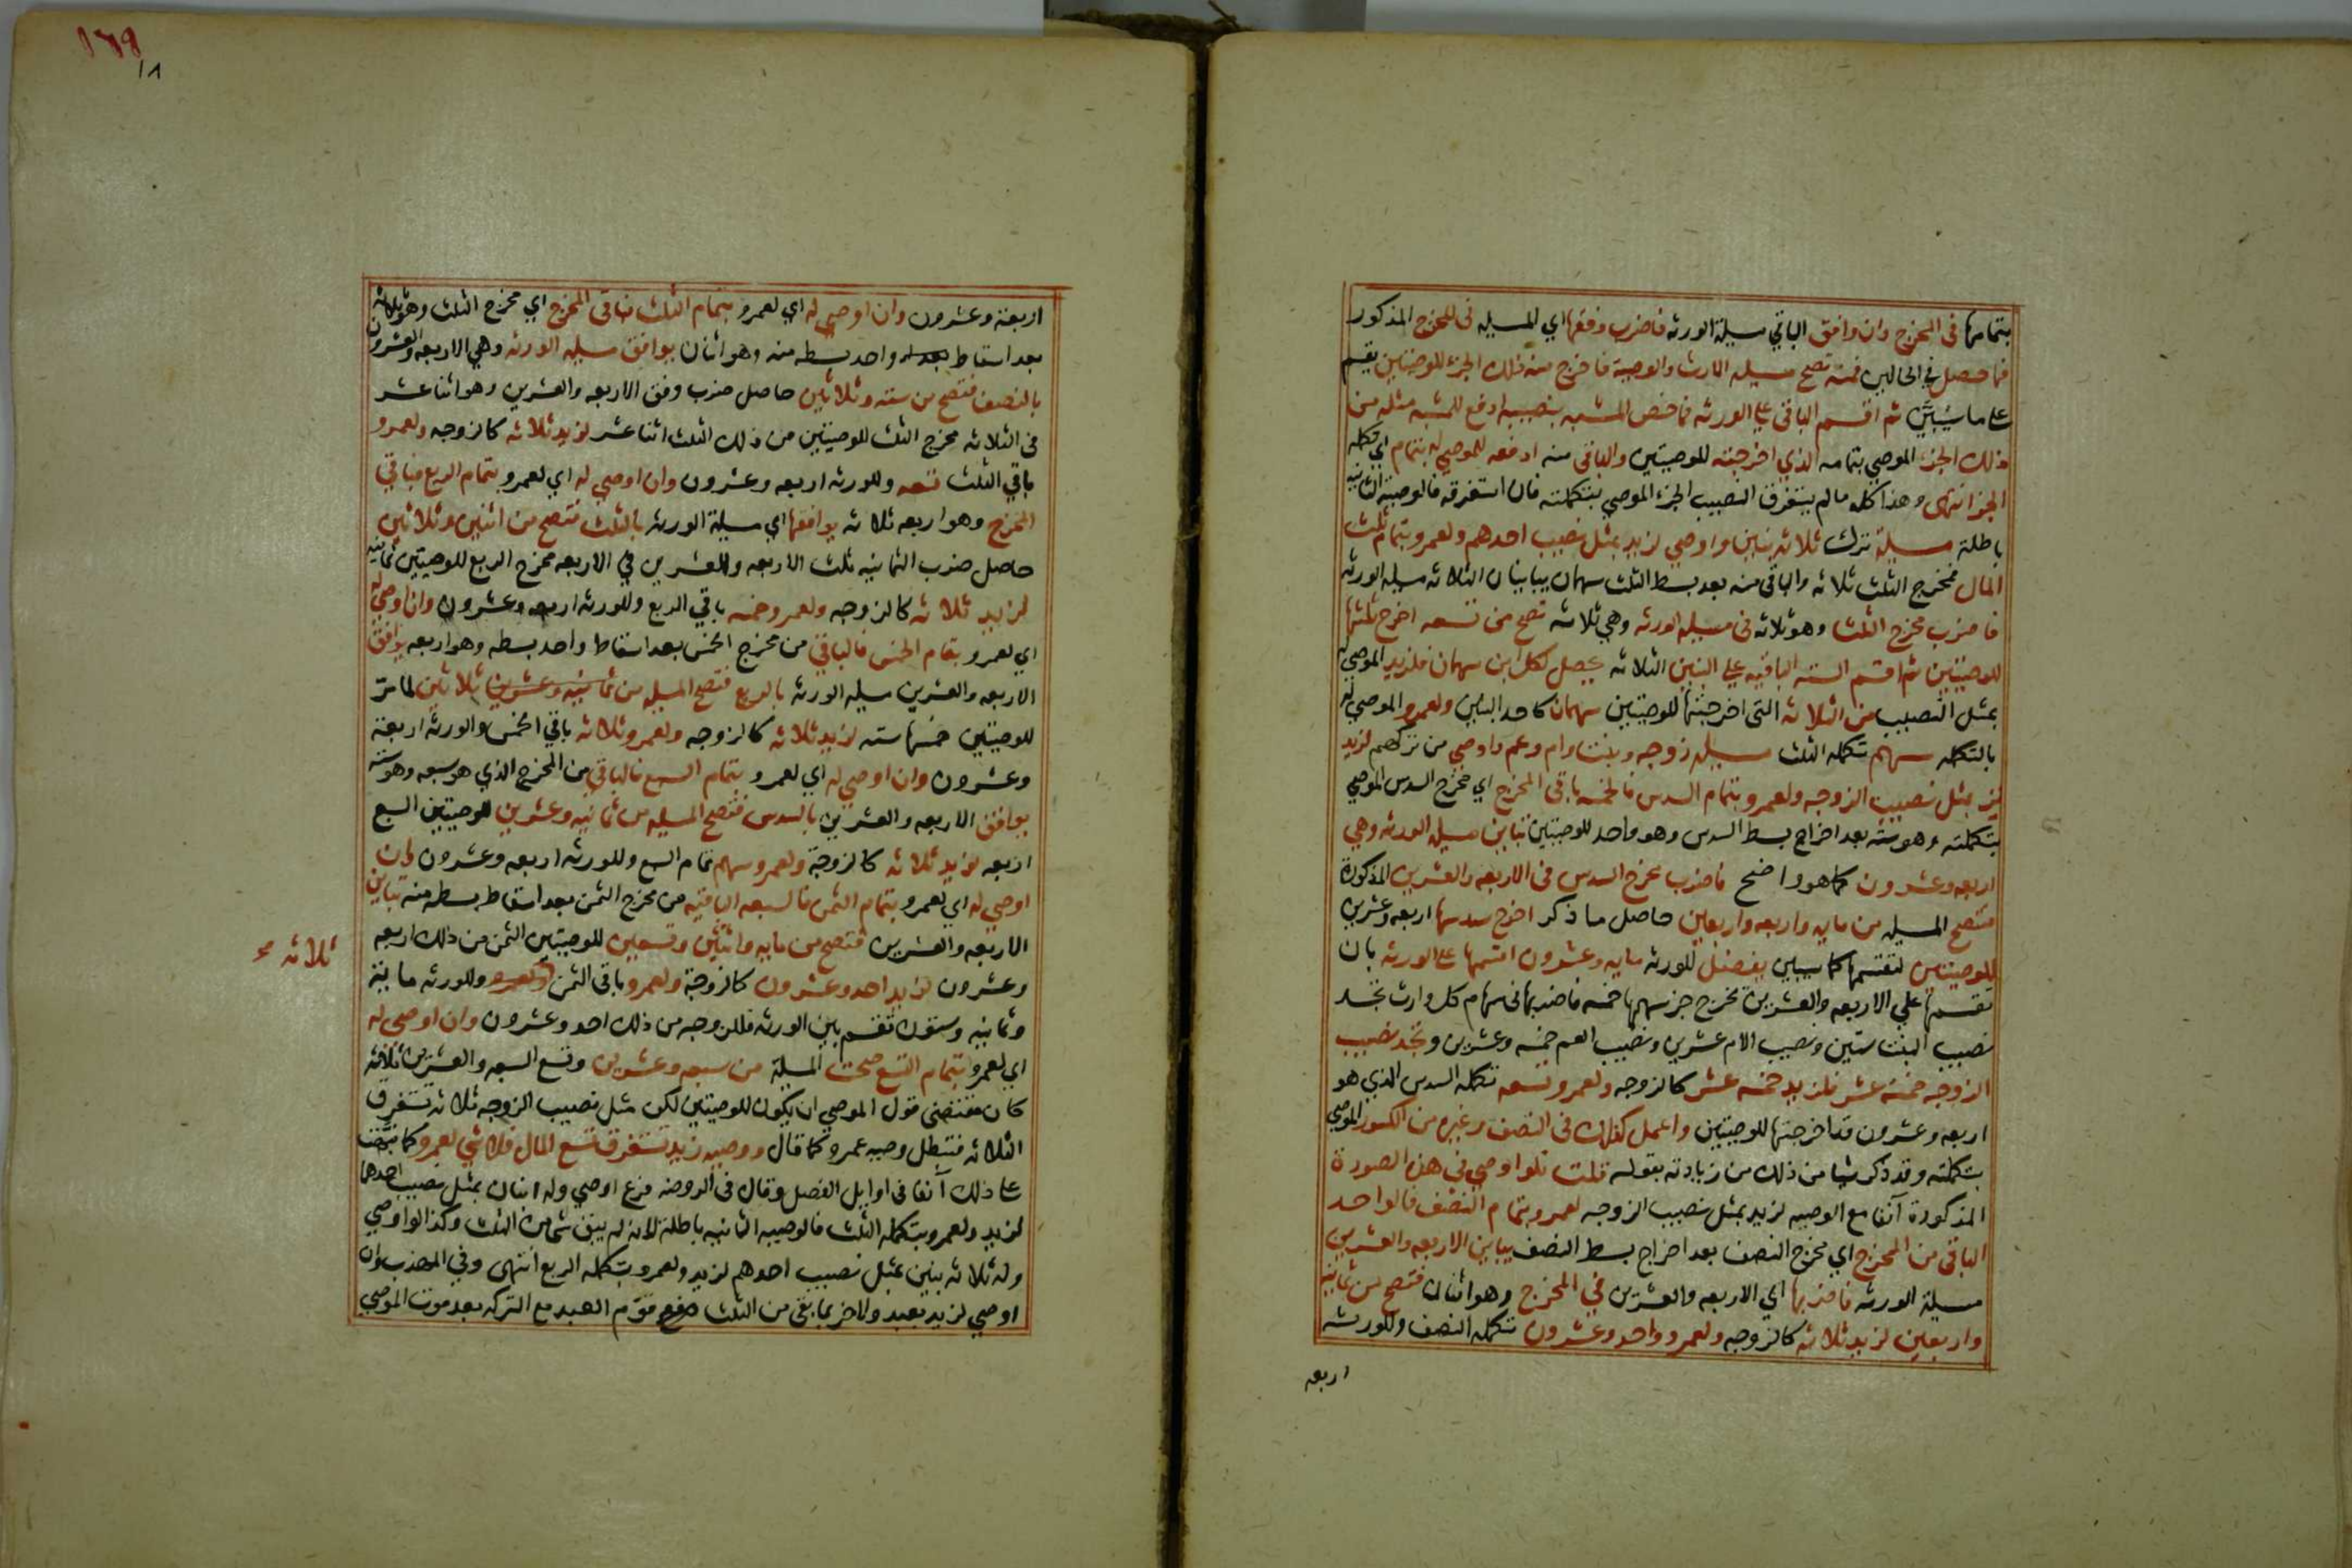 بتمامها في المخرج وان وافق الباقي مسيلة الورثه فاضرب وفقها اي المسيله في المخرج المذكور
فما حصل في الحالين فمنه تصح مسيله الارث والوصية فاخرج منه ذلك الجزء للوصيتين يقسم
على ما سيبين ثم اقسم الباقي على الورثه فما خص المشبه بنصيبه ادفع للمشبه مثله من
ذلك الجزء الموصي بتمامه الذي اخرجته للوصيتين والباقي منه ادفعه للموصي له بتمام اي تكمله
الجزء انتهى وهذا كله ما لم يستغرق النصيب الجزء الموصي بتكملته فان استغرقه فالوصية الثانيه
باطلة مسيلة ترك ثلاثه بنين واوصي لزيد بمثل نصيب احدهم ولعمرو بتمام ثلث
المال فمخرج الثلث ثلاثه والباقي منه بعد بسط الثلث سهمان يباينان الثلاثه مسيله الورثه
فاضرب مخرج الثلث وهو ثلاثه في مسيله الورثه وهي ثلاثه تصح من تسعه اخرج ثلثها
للوصيتين ثم اقسم السته الباقيه على البنين الثلاثه يحصل لكل ابن سهمان فلزيد الموصي له
بمثل النصيب من الثلاثه التي اخرجتها للوصيتين سهمان كاحد البنين ولعمرو الموصي له
بالتكمله سهم تكمله الثلث مسيله زوجه وبنت وام وعم واوصي من تركهم لزيد
بمثل نصيب الزوجه ولعمرو بتمام السدس فالخمسه باقي المخرج اي مخرج السدس الموصي
بتكملته وهو سته بعد اخراج بسط السدس وهو واحد للوصيتين تباين مسيله الورثه وهي
اربعه وعشرون كما هو واضح فاضرب مخرج السدس في الاربعه والعشرين المذكورة
فتصح المسيله من مايه واربعه واربعين حاصل ما ذكر اخرج سدسها اربعه وعشرين
للوصيتين لتقسمها كما سيبين يفضل للورثه مايه وعشرون اقسمها على الورثه بان
تقسمها على الاربعه والعشرين يخرج جزء سهمها خمسه فاضربها في سهام كل وارث تجد
نصيب البنت ستين ونصيب الام عشرين ونصيب العم خمسه وعشرين وتجد نصيب
الزوجه خمسة عشر فلزيد خمسه عشر كالزوجه ولعمرو تسعه تكمله السدس الذي هو
اربعه وعشرون قد اخرجتها للوصيتين واعمل كذلك في النصف وغيره من الكسور الموصي
بتكملته وقد ذكر شيا من ذلك من زيادته بقوله قلت فلو اوصي في هذه الصورة
المذكورة آنفا مع الوصيه لزيد بمثل نصيب الزوجه لعمرو بتمام النصف فالواحد
الباقي من المخرج اي مخرج النصف بعد اخراج بسط النصف يباين الاربعه والعشرين
مسيلة الورثه فاضربها اي الاربعه والعشرين في المخرج وهو اثنان فتصح من ثمانيه
واربعين لزيد ثلاثه كالزوجه ولعمرو واحد وعشرون تكمله النصف وللورثه
اربعه
١٦٩
١٨
اربعة وعشرون وان اوصي له اي لعمرو بتمام الثلث فباقي المخرج اي مخرج الثلث وهو ثلاثه
بعد اسقاط واحد بسطه منه وهو اثنان يوافق مسيله الورثه وهي الاربعه والعشرون
بالنصف فتصح من سته وثلاثين حاصل ضرب وفق الاربعه والعشرين وهو اثنا عشر
في الثلاثه مخرج الثلث للوصيتين من ذلك الثلث اثنا عشر لزيد ثلاثه كالزوجه ولعمرو
باقي الثلث تسعه وللورثه اربعه وعشرون وان اوصي له اي لعمرو بتمام الربع فباقي
المخرج وهو اربعه ثلاثه يوافقها اي مسيلة الورثه بالثلث فتصح من اثنين وثلاثين
حاصل ضرب الثمانيه ثلث الاربعه والعشرين في الاربعه مخرج الربع للوصيتين ثمانيه
لزيد ثلاثه كالزوجه ولعمرو خمسه باقي الربع وللورثه اربعه وعشرون وان اوصي له
اي لعمرو بتمام الخمس فالباقي من مخرج الخمس بعد اسقاط واحد بسطه وهو اربعه يوافق
الاربعه والعشرين مسيله الورثه بالربع فتصح المسيله من ثمانيه وعشرين ثلاثين لما مر
للوصيتين خمسها سته لزيد ثلاثه كالزوجه ولعمرو ثلاثه باقي الخمس وللورثه اربعة
وعشرون وان اوصي له اي لعمرو بتمام السبع فالباقي من المخرج الذي هو سبعه وهو سته
يوافق الاربعه والعشرين بالسدس فتصح المسيله من ثمانيه وعشرين للوصيتين السبع
اربعه لزيد ثلاثه كالزوجة ولعمرو سهم تمام السبع وللورثه اربعه وعشرون وان
اوصي له اي لعمرو بتمام الثمن فالسبعه الباقيه من مخرج الثمن بعد اسقاط بسطه منه تباين
الاربعه والعشرين فتصح من مايه واثنين وتسعين للوصيتين الثمن من ذلك اربعه
وعشرون لزيد احد وعشرون كالزوجة ولعمرو باقي الثمن وللورثه مايه
ثلاثه صح
وثمانيه وستون تقسم بين الورثه فللزوجه من ذلك احد وعشرون وان اوصي له
اي لعمرو بتمام التسع صحت المسيلة من سبعه وعشرين وتسع السبعه والعشرين ثلاثه
كان مقتضى قول الموصي ان يكون للوصيتين لكن مثل نصيب الزوجه ثلاثه تستغرق
الثلاثه فتبطل وصيه عمرو كما قال ووصيه زيد تستغرق تسع المال فلا شي لعمرو كما نبهت
على ذلك آنفا في اوايل الفصل وقال في الروضه فرع اوصي وله ابنان بمثل نصيب احدهما
لزيد ولعمرو بتكمله الثلث فالوصيه الثانيه باطلة لانه لم يبق شي من الثلث وكذا لو اوصي
وله ثلاثه بنين بمثل نصيب احدهم لزيد ولعمرو بتكمله الربع انتهى وفي المهذب وان
اوصي لزيد بعبد ولاخر بما بقي من الثلث قوم العبد مع التركه بعد موت الموصي